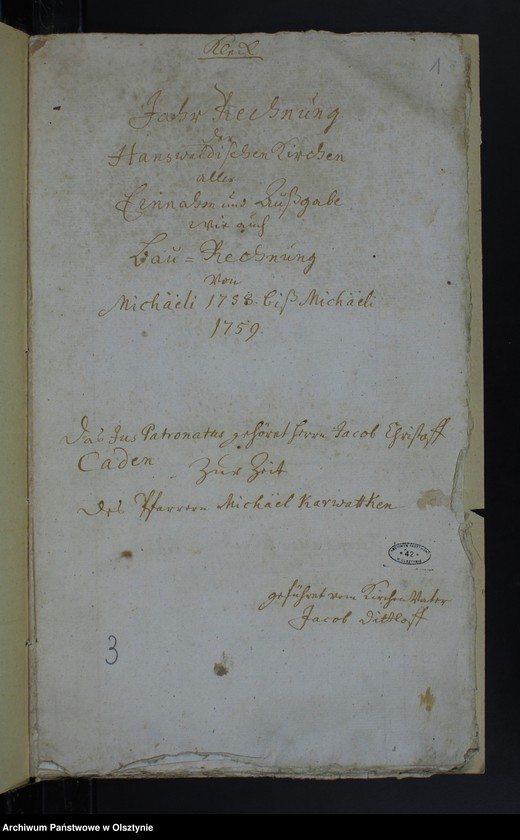 1
Jahr Rechnung
der
Hanswaldischen Kirchen
aller
Einnahm und Außgabe
wie auch
Bau = Rechnung
von
Michäeli 1758. biß Michäeli
1759.
Das Jus Patronatus gehöret Herrn Jacob Christoff
Caden
zur Zeit
des Pfarrern Michäel Karwattken
geführet vom Kirchen Vater
Jacob Dittloff
3
42
Archiwum Państwowe w Olsztynie